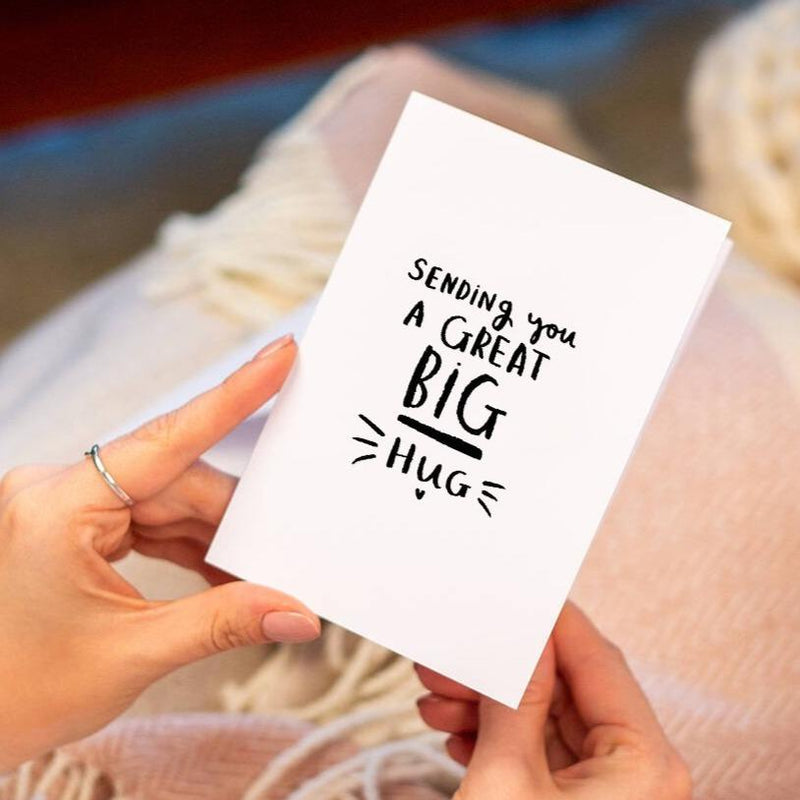 SENDiNg you
A GREAT
BiG
HUG